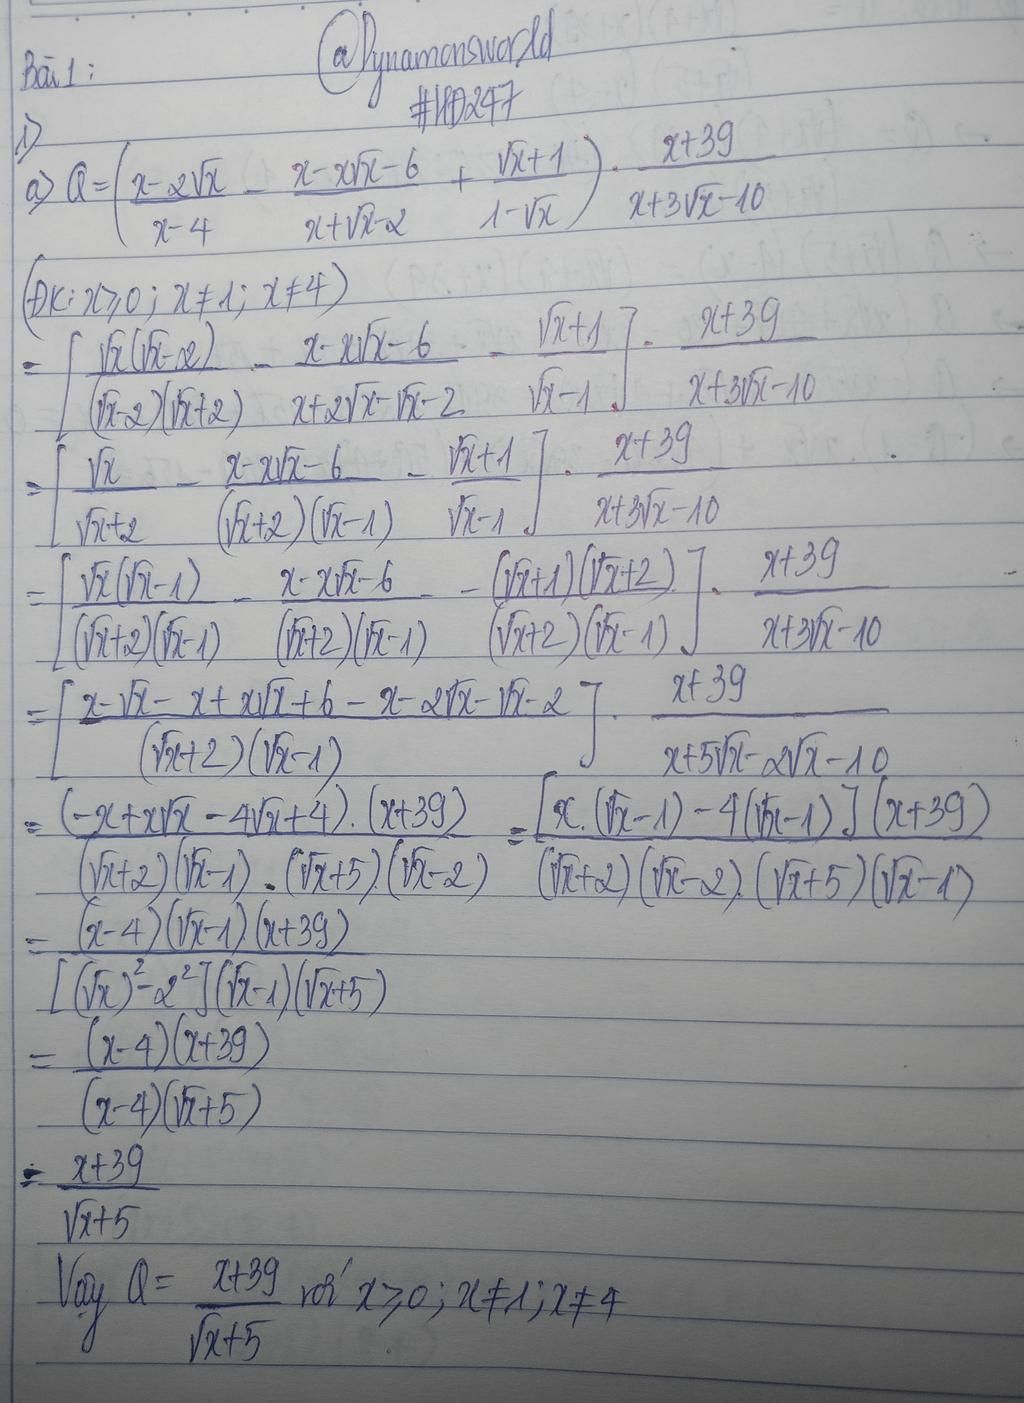 Bài 1:
@Dynamonsworld
#HD247
1)
a) Q = ( (x-2√x)/(x-4) - (x-x√x-6)/(x+√x-2) + (√x+1)/(1-√x) ) . (x+39)/(x+3√x-10)
(ĐK: x≥0; x≠1; x≠4)
= [ (√x(√x-2))/((√x-2)(√x+2)) - (x-x√x-6)/(x+2√x-√x-2) - (√x+1)/(√x-1) ] . (x+39)/(x+3√x-10)
= [ (√x)/(√x+2) - (x-x√x-6)/((√x+2)(√x-1)) - (√x+1)/(√x-1) ] . (x+39)/(x+3√x-10)
= [ (√x(√x-1))/((√x+2)(√x-1)) - (x-x√x-6)/((√x+2)(√x-1)) - ((√x+1)(√x+2))/((√x+2)(√x-1)) ] . (x+39)/(x+3√x-10)
= [ (x-√x-x+x√x+6-x-2√x-√x-2)/((√x+2)(√x-1)) ] . (x+39)/(x+5√x-2√x-10)
= ((-x+x√x-4√x+4).(x+39))/((√x+2)(√x-1).(√x+5).(√x-2)) = ([x.(√x-1)-4(√x-1)](x+39))/((√x+2)(√x-2).(√x+5)(√x-1))
= ((x-4)(√x-1)(x+39))/([(√x)²-2²](√x-1)(√x+5))
= ((x-4)(x+39))/((x-4)(√x+5))
= (x+39)/(√x+5)
Vậy Q = (x+39)/(√x+5) với x≥0; x≠1; x≠4